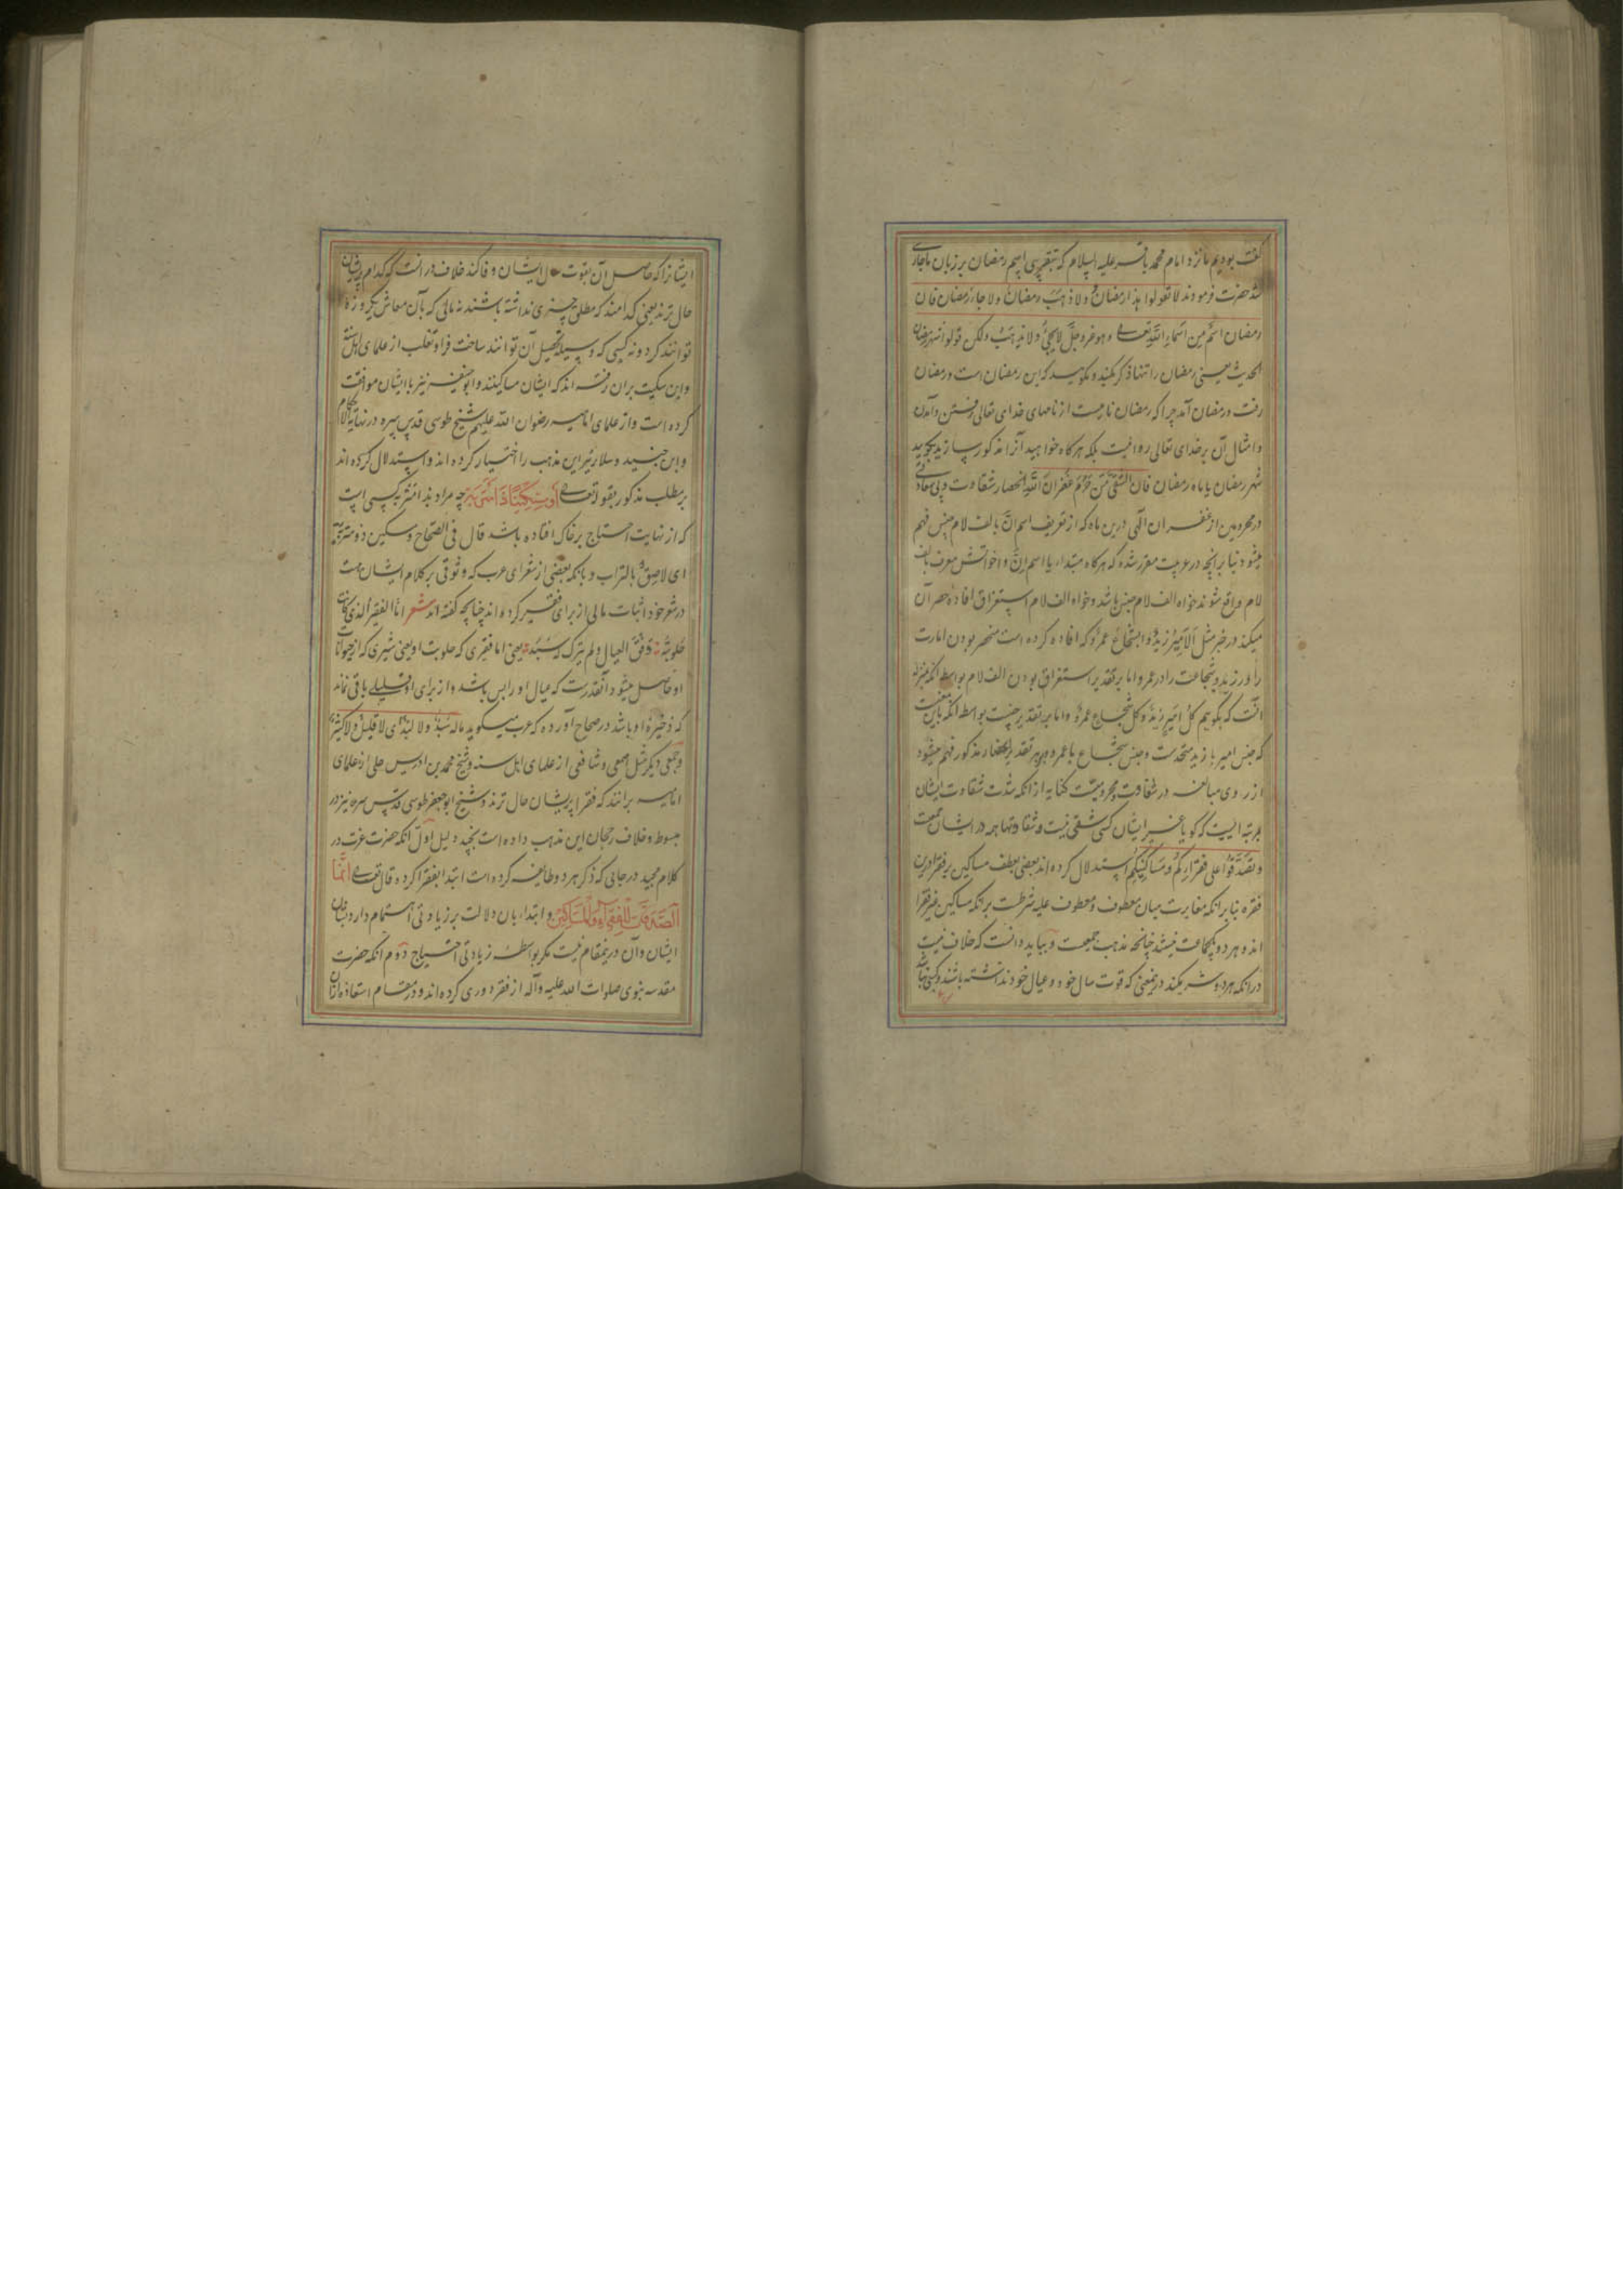 گفت بودیم ما نزد امام محمد باقر علیه السلام که بتقریبی اسم رمضان بر زبان ما جاری
شد حضرت فرمودند لا تقولوا هذا رمضان ولا ذهب رمضان ولا جاء رمضان فان
رمضان اسم من اسماء الله تعالی و هو عز و جل لا یجیء ولا یذهب ولکن قولوا شهر رمضان
الحدیث یعنی رمضان را تنها ذکر مکنید و مگویید که این رمضان است و رمضان
رفت و رمضان آمد چرا که رمضان نامیست از نامهای خدای تعالی و رفتن و آمدن
و امثال آن بر خدای تعالی روا نیست بلکه هرگاه خواهید آنرا مذکور سازید بگویید
شهر رمضان یا ماه رمضان فان الشقی من حرم غفران الله انحصار شقاوت و بی سعادتی
در محرومین از غفران الهی درین ماه که از تعریف اسم ان بالف لام جنس فهم
میشود بنا بر آنچه در عربیت مقرر شده که هرگاه مبتداء یا اسم ان و اخواتش معرف بالف
لام واقع شوند خواه الف لام جنس باشد و خواه الف لام استغراق افاده حصر آن
میکند در خبر مثل الامیر زید و الشجاع عمرو که افاده کرده است منحصر بودن امارت
را در زید و شجاعت را در عمرو اما بر تقدیر استغراق بودن الف لام بواسطه آنکه بمنزله
آنست که بگوییم کل امیر زید و کل شجاع عمرو و اما بر تقدیر جنسیت بواسطه آنکه باین معنیست
که جنس امیر با زید متحدست و جنس شجاع با عمرو و بهر تقدیر انحصار مذکور فهم میشود
از روی مبالغه در شقاوت و محرومیت کنایه از آنکه شدت شقاوت ایشان
بمرتبه ایست که گویا غیر ایشان کسی شقی نیست و شقاوتها همه در ایشان جمعست
و تصدقوا علی فقرائکم و مساکینکم استدلال کرده اند بعضی بعطف مساکین بر فقرا درین
فقره بنا بر آنکه مغایرت میان معطوف و معطوف علیه شرطست بر آنکه مساکین غیر فقرا
اند و هر دو یکجماعت نیستند چنانچه مذهب جمعیست و بباید دانست که خلاف نیست
در آنکه هر دو شریکند درینمعنی که قوت سال خود و عیال خود نداشته باشند و کسبی نباشد
ایشانرا که حاصل آن بقوت سال ایشان وفا کند خلاف در آنست که کدام پریشان
حال ترند یعنی کدامند که مطلق چیزی نداشته باشند نه مالی که بآن معاش یکروزه
توانند کرد و نه کسبی که وسیله تحصیل آن توانند ساخت فرا و ثعلب از علمای اهل سنة
و ابن سکیت بران رفته اند که ایشان مساکینند و ابو حنیفه نیز با ایشان موافقت
کرده است و از علمای امامیه رضوان الله علیهم شیخ طوسی قدس سره در نهایة الاحکام
و ابن جنید و سلار نیز این مذهب را اختیار کرده اند و استدلال کرده اند
بر مطلب مذکور بقوله تعالی او مسکینا ذا متربة چه مراد بذا متربه کسی است
که از نهایت احتیاج بر خاک افتاده باشد قال فی الصحاح و مسکین ذو متربة
ای لاصق بالتراب و بآنکه بعضی از شعرای عرب که وثوقی بر کلام ایشان هست
در شعر خود اثبات مالی از برای فقیر کرده اند چنانچه گفته اند شعر اما الفقیر الذی کانت
حلوبته وفق العیال ولم یترک له سبد یعنی اما فقیری که حلوبت او یعنی شیری که از حیوانات
او حاصل میشود آنقدرست که عیال او را بس باشد و از برای او قلیلی باقی نماند
که ذخیره او باشد در صحاح آورده که عرب میگوید ماله سبد ولا لبد ای لا قلیل ولا کثیر
و جمعی دیگر مثل اصمعی و شافعی از علمای اهل سنه و شیخ محمد بن ادریس حلی از علمای
امامیه برانند که فقرا پریشان حال ترند و شیخ ابو جعفر طوسی قدس سره نیز در
مبسوط و خلاف رجحان این مذهب داده است بچند دلیل اول آنکه حضرت عزت در
کلام مجید در جایی که ذکر هر دو طایفه کرده است ابتدا بفقرا کرده قال تعالی انما
الصدقات للفقراء والمساکین و ابتداء بان دلالت بر زیادتی اهتمام دارد بشان
ایشان و آن درینمقام نیست مگر بواسطه زیادتی احتیاج دوم آنکه حضرت
مقدسه نبوی صلوات الله علیه و آله از فقر دوری کرده اند و در مقام استعاذه ازان